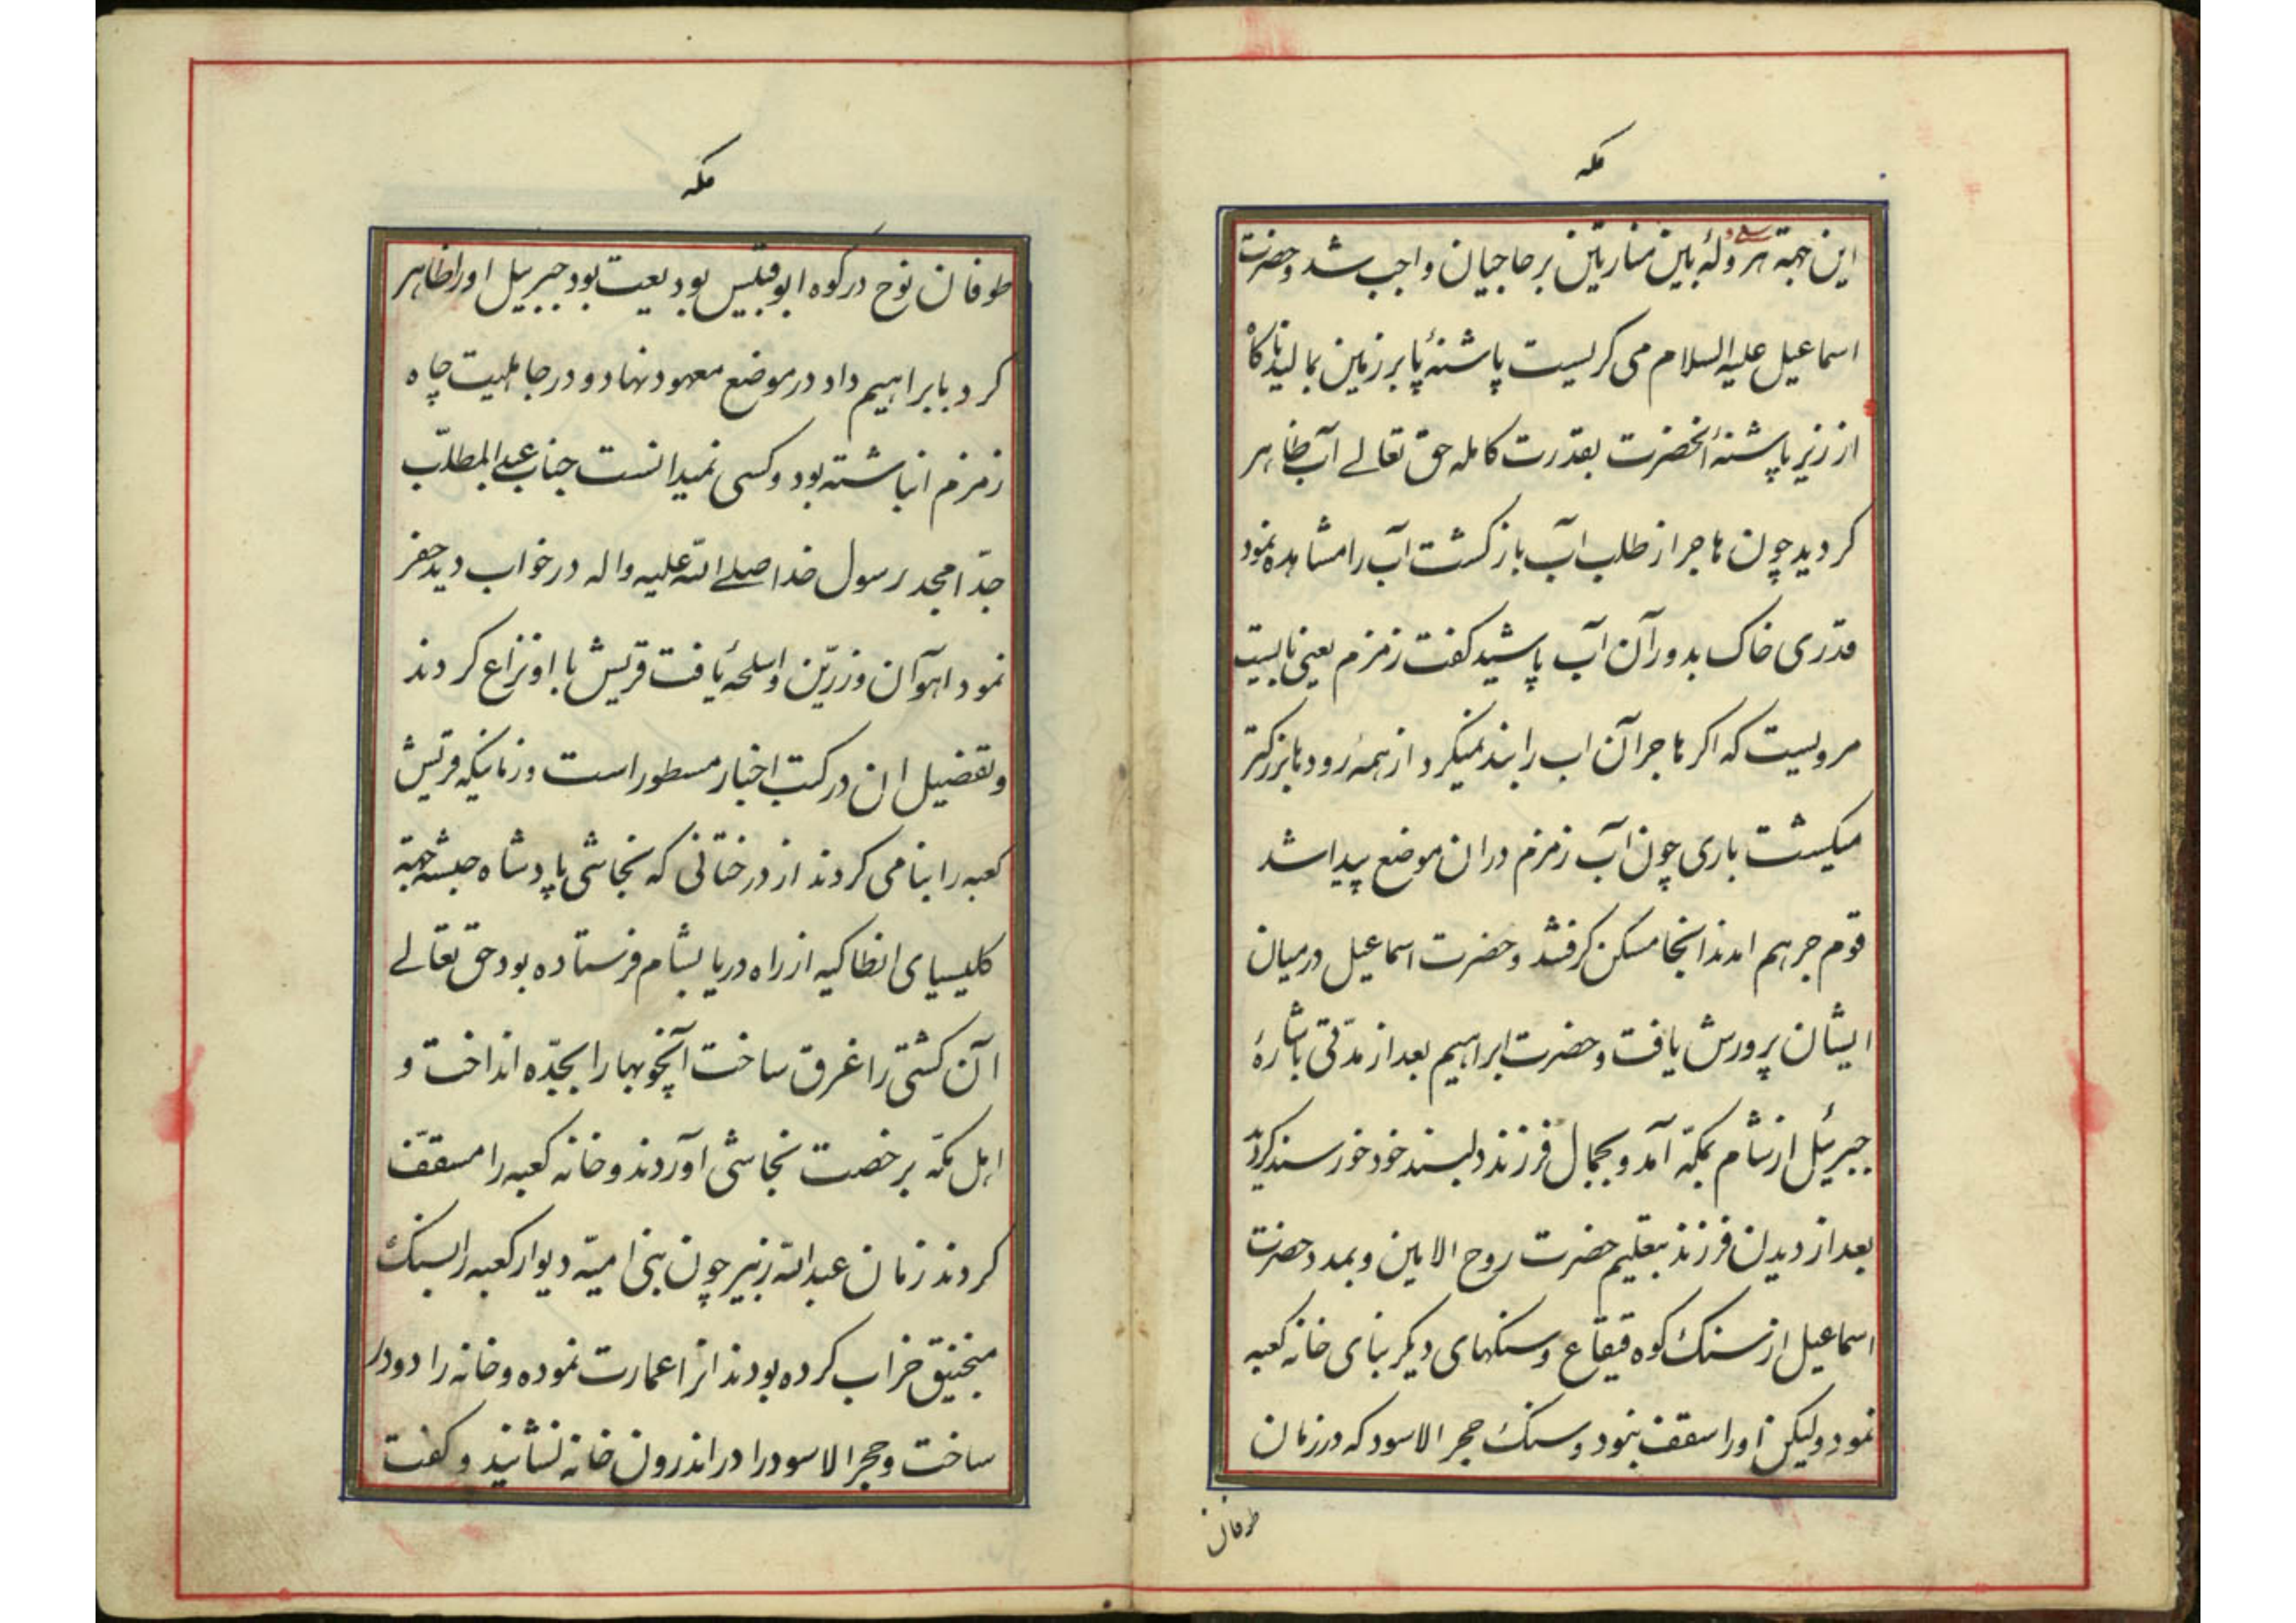 مکه
این جهة هرولهٔ بین منارتین بر حاجیان واجب شد و حضرت
اسماعیل علیه السلام می کریست پاشنهٔ پا بر زمین بمالید ناکاه
از زیر پاشنهٔ آنحضرت بقدرت کامله حق تعالے آب ظاهر
کردید چون هاجر از طلب آب بازکشت آب را مشاهده نمود
قدری خاک بدور آن آب پاشید کفت زمزم یعنی بایست
مرویست که اکر هاجر آن اب را بند نمیکرد از همهٔ رودها بزرکتر
میکشت باری چون آب زمزم دران موضع پیدا شد
قوم جرهم امدند انجا مسکن کرفتند و حضرت اسماعیل در میان
ایشان پرورش یافت و حضرت ابراهیم بعد از مدّتی باشارهٔ
جبرئیل از شام بمکّه آمد و بجمال فرزند دلبند خود خورسند کردید
بعد از دیدن فرزند بتعلیم حضرت روح الامین و بمدد حضرت
اسماعیل از سنک کوه قیقاع و سنکهای دیکر بنای خانه کعبه
نمود ولیکن او را سقف ننمود و سنک حجر الاسود که در زمان
طوفان
مکه
طوفان نوح در کوه ابوقبیس بودیعت بود جبرییل او را ظاهر
کرد بابراهیم داد در موضع معهود نهاد و در جاهلیت چاه
زمزم انباشته بود و کسی نمیدانست جناب عبد المطلّب
جدّ امجد رسول خدا صلے الله علیه واله در خواب دید حفر
نمود اهوآن زرّین و اسلحهٔ یافت قریش با او نزاع کردند
و تفضیل ان در کتب اخبار مسطور است و زمانیکه قریش
کعبه را بنا می کردند از درختانی که نجاشی پادشاه حبشه جهة
کلیسیای انطاکیه از راه دریا بشام فرستاده بود حق تعالے
آن کشتی را غرق ساخت آنچوبها را بجدّه انداخت و
اهل مکّه برخصت نجاشی آوردند و خانه کعبه را مسقف
کردند زمان عبد الله زبیر چون بنی امیّه دیوار کعبه را بسنک
منجنیق خراب کرده بودند انرا عمارت نموده و خانه را دو در
ساخت و حجر الاسود را در اندرون خانه نشانید و کفت